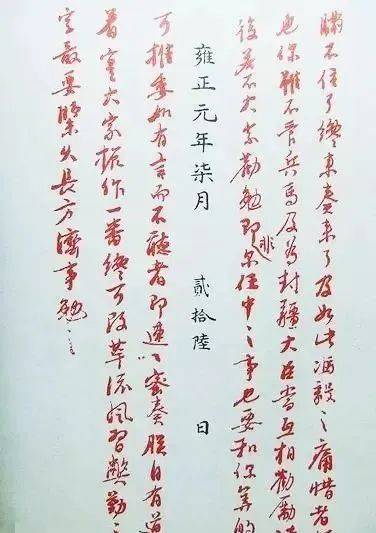 瞞不住了纔來奏來了及如此馮毅之痛惜者
也你雖不管兵馬及爲封疆大臣當互相勸勵
後若不大家勸勉即非任中之事也要和你算的
雍正元年柒月 貳拾陸 日
可推委如有言而不聽者即速速密奏朕自有道
着實大家振作一番纔可改革流風習弊勤之
字最要緊久長方濟事勉之